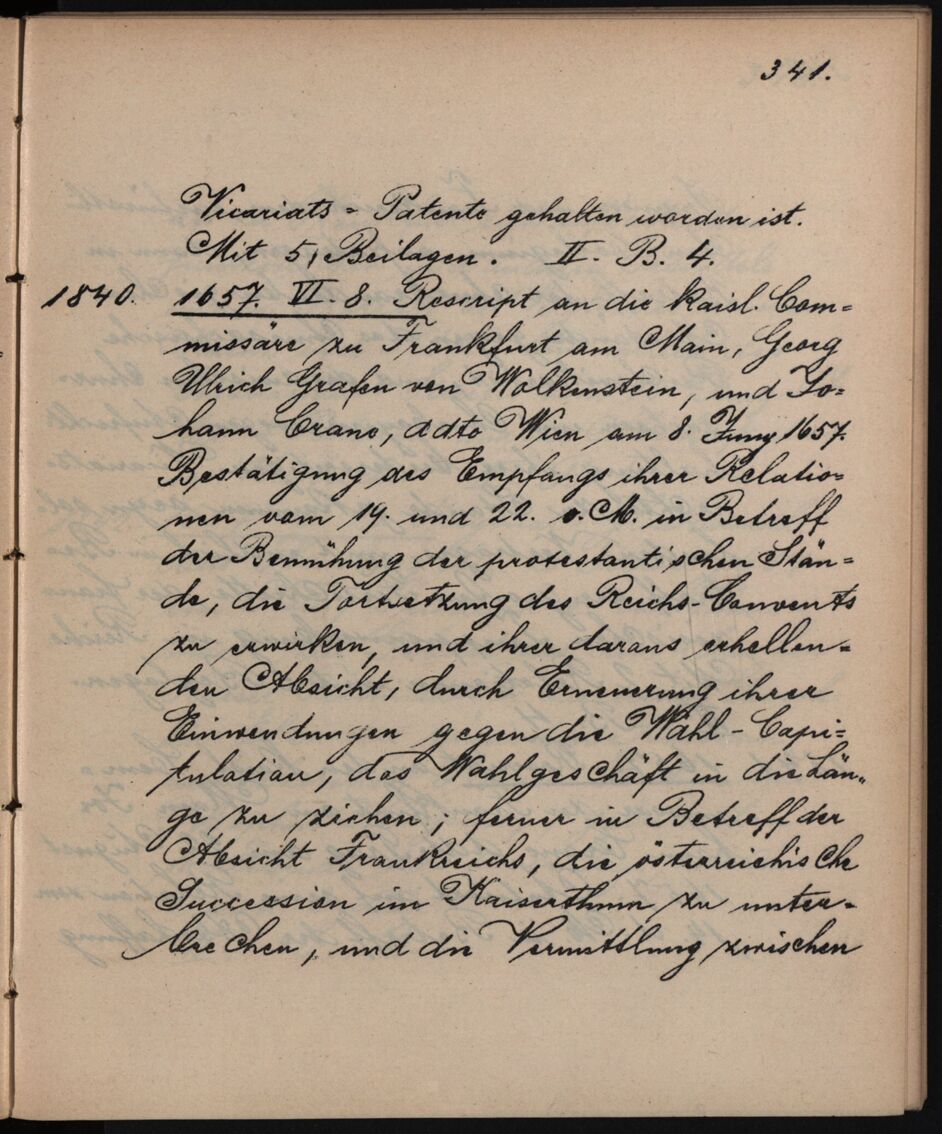 341.
Vicariats = Patente gehalten worden ist.
Mit 5, Beilagen. II. B. 4.
1840. 1657. VI. 8. Rescript an die kaisl. Com=
missäre zu Frankfurt am Main, Georg
Ulrich Grafen von Wolkenstein, und Jo=
hann Crane, ddto Wien am 8. Juny 1657.
Bestätigung des Empfangs ihrer Relatio=
nen vom 19. und 22. v. M. in Betreff
der Bemühung der protestantischen Stän=
de, die Fortsetzung des Reichs-Convents
zu erwirken, und ihrer daraus erhellen=
den Absicht, durch Erneuerung ihrer
Einwendungen gegen die Wahl-Capi=
tulation, das Wahlgeschäft in die Län=
ge zu ziehen; ferner in Betreff der
Absicht Frankreichs, die österreichische
Succession im Kaiserthum zu unter=
brechen, und die Vermittlung zwischen